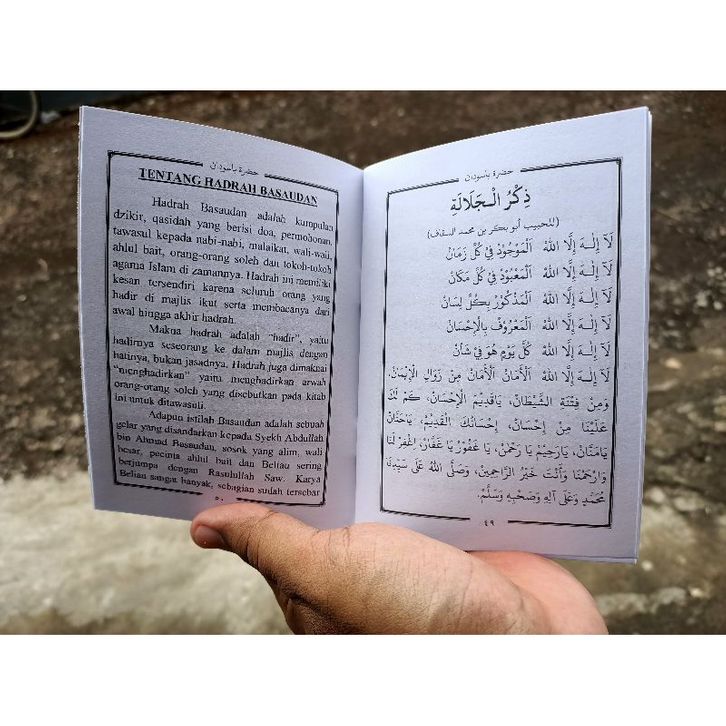 حضرة باسودان
ذِكْرُ الْـجَلَالَةِ
(للحبيب أبو بكر بن محمد السقاف)
لَآ إِلٰـهَ إِلَّا اللهُ الْمَوْجُودْ فِيْ كُلِّ زَمَانْ
لَآ إِلٰـهَ إِلَّا اللهُ الْمَعْبُوْدْ فِيْ كُلِّ مَكَانْ
لَآ إِلٰـهَ إِلَّا اللهُ الْمَذْكُوْرْ بِكُلِّ لِسَانْ
لَآ إِلٰـهَ إِلَّا اللهُ الْمَعْرُوْفْ بِالْإِحْسَانْ
لَآ إِلٰـهَ إِلَّا اللهُ كُلَّ يَوْمٍ هُوَ فِيْ شَانْ
لَآ إِلٰـهَ إِلَّا اللهُ الْأَمَانْ الْأَمَانْ مِنْ زَوَالِ الْإِيْمَانْ
وَمِنْ فِتْنَةِ الشَّيْطَانْ، يَاقَدِيْمَ الْإِحْسَانْ، كَمْ لَكَ
عَلَيْنَا مِنْ إِحْسَانْ، إِحْسَانُكَ الْقَدِيْمْ، يَاحَنَّانْ
يَامَنَّانْ، يَارَحِيْمْ يَا رَحْمٰنْ، يَا غَفُوْرْ يَا غَفَّارْ، اغْفِرْ لَنَا
وَارْحَمْنَا وَأَنْتَ خَيْرُ الرَّاحِمِيْنَ، وَصَلَّى اللهُ عَلَى سَيِّدِنَا
مُحَمَّدٍ وَعَلَى آلِهِ وَصَحْبِهِ وَسَلَّمَ.
٤٩
حضرة باسودان
TENTANG HADRAH BASAUDAN
Hadrah Basaudan adalah kumpulan
dzikir, qasidah yang berisi doa, permohonan,
tawasul kepada nabi-nabi, malaikat, wali-wali,
ahlul bait, orang-orang soleh dan tokoh-tokoh
agama Islam di zamannya. Hadrah ini memiliki
kesan tersendiri karena seluruh orang yang
hadir di majlis ikut serta membacanya dari
awal hingga akhir hadrah.
Makna hadrah adalah “hadir”, yaitu
hadirnya seseorang ke dalam majlis dengan
hatinya, bukan jasadnya. Hadrah juga dimaknai
“menghadirkan” yaitu menghadirkan arwah
orang-orang soleh yang disebutkan pada kitab
ini untuk ditawasuli.
Adapun istilah Basaudan adalah sebuah
gelar yang disandarkan kepada Syekh Abdullah
bin Ahmad Basaudan, sosok yang alim, wali
besar, pecinta ahlul bait dan Beliau sering
berjumpa dengan Rasulullah Saw. Karya
Beliau sangat banyak, sebagian sudah tersebar
٥٠